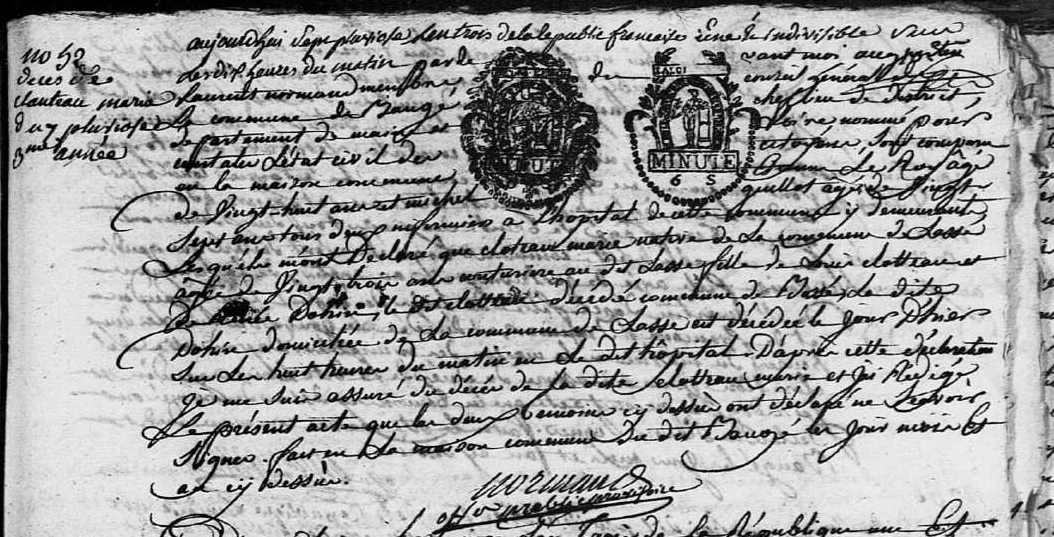 no 52
deces de
clauteau marie
du 7 pluviose
3me année
aujourdhui sept pluviose l'an trois de la republique francaise une & indivisible sur
les dix heures du matin par de vant moi
Laurent normand membre du conseil général
de la commune de Baugé, chef lieu de district,
département de maine et Loire nommé pour
constater l'état civil des citoyens, sont comparu
en la maison commune Le Roy âgé
de vingt-huit ans et michel guillot âgé de vingt
sept ans tous deux infirmiers a l'hopital de cette commune y demeurants
Lesquels mont Déclaré que clotteau marie native de la commune de Lasse
âgée de vingt trois ans couturiere au dit Lasse fille de Louis clotteau et
de Dohin, le dit clotteau décédé commune de La dite
Dohin domiciliée de La commune de Lasse est décédée le jour D'hier
sur les huit heures du matin en Le dit hôpital. D'après cette déclaration
je me suis assuré du décès de la dite clotteau marie et jai Rédigé
Le présent acte que les deux témoins cy dessus ont déclaré ne sçavoir
signer. fait en La maison commune du dit Baugé les jour mois et
an cy dessus.
MINUTE
MINUTE
6 S
normand
offer public provisoire
de La République une Et